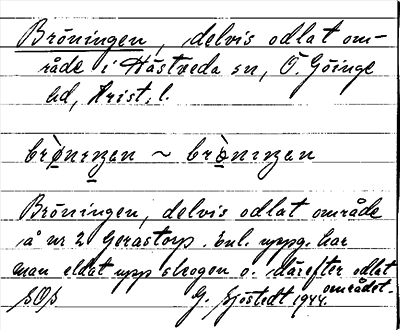 Bröningen, delvis odlat om-
råde i Hästveda sn, Ö. Göinge
hd, Krist. l.
brø̀nɩŋen ~ brònɩŋen
Bröningen, delvis odlat område
å nr 2 Gerastorp. Enl. uppg. har
man eldat upp skogen o. därefter odlat
området.
SOS G. Sjöstedt 1944.